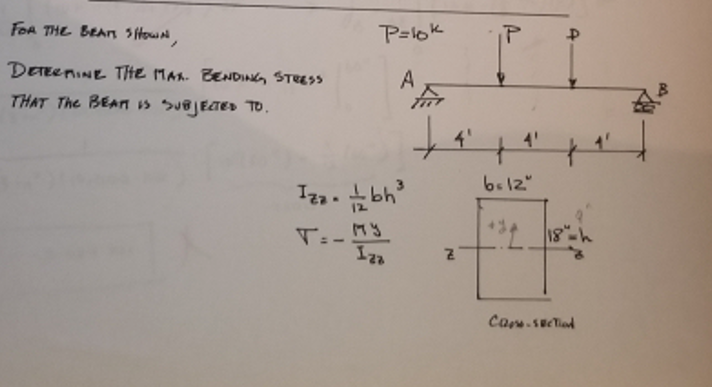 FOR THE BEAM SHOWN,
DETERMINE THE MAX. BENDING STRESS
THAT THE BEAM IS SUBJECTED TO.
P=10ᵏ
P
P
A
B
4'
4'
4'
I_zz = 1/12 bh³
σ = - My/I_zz
b=12"
+y
18"=h
z
z
CROSS-SECTION